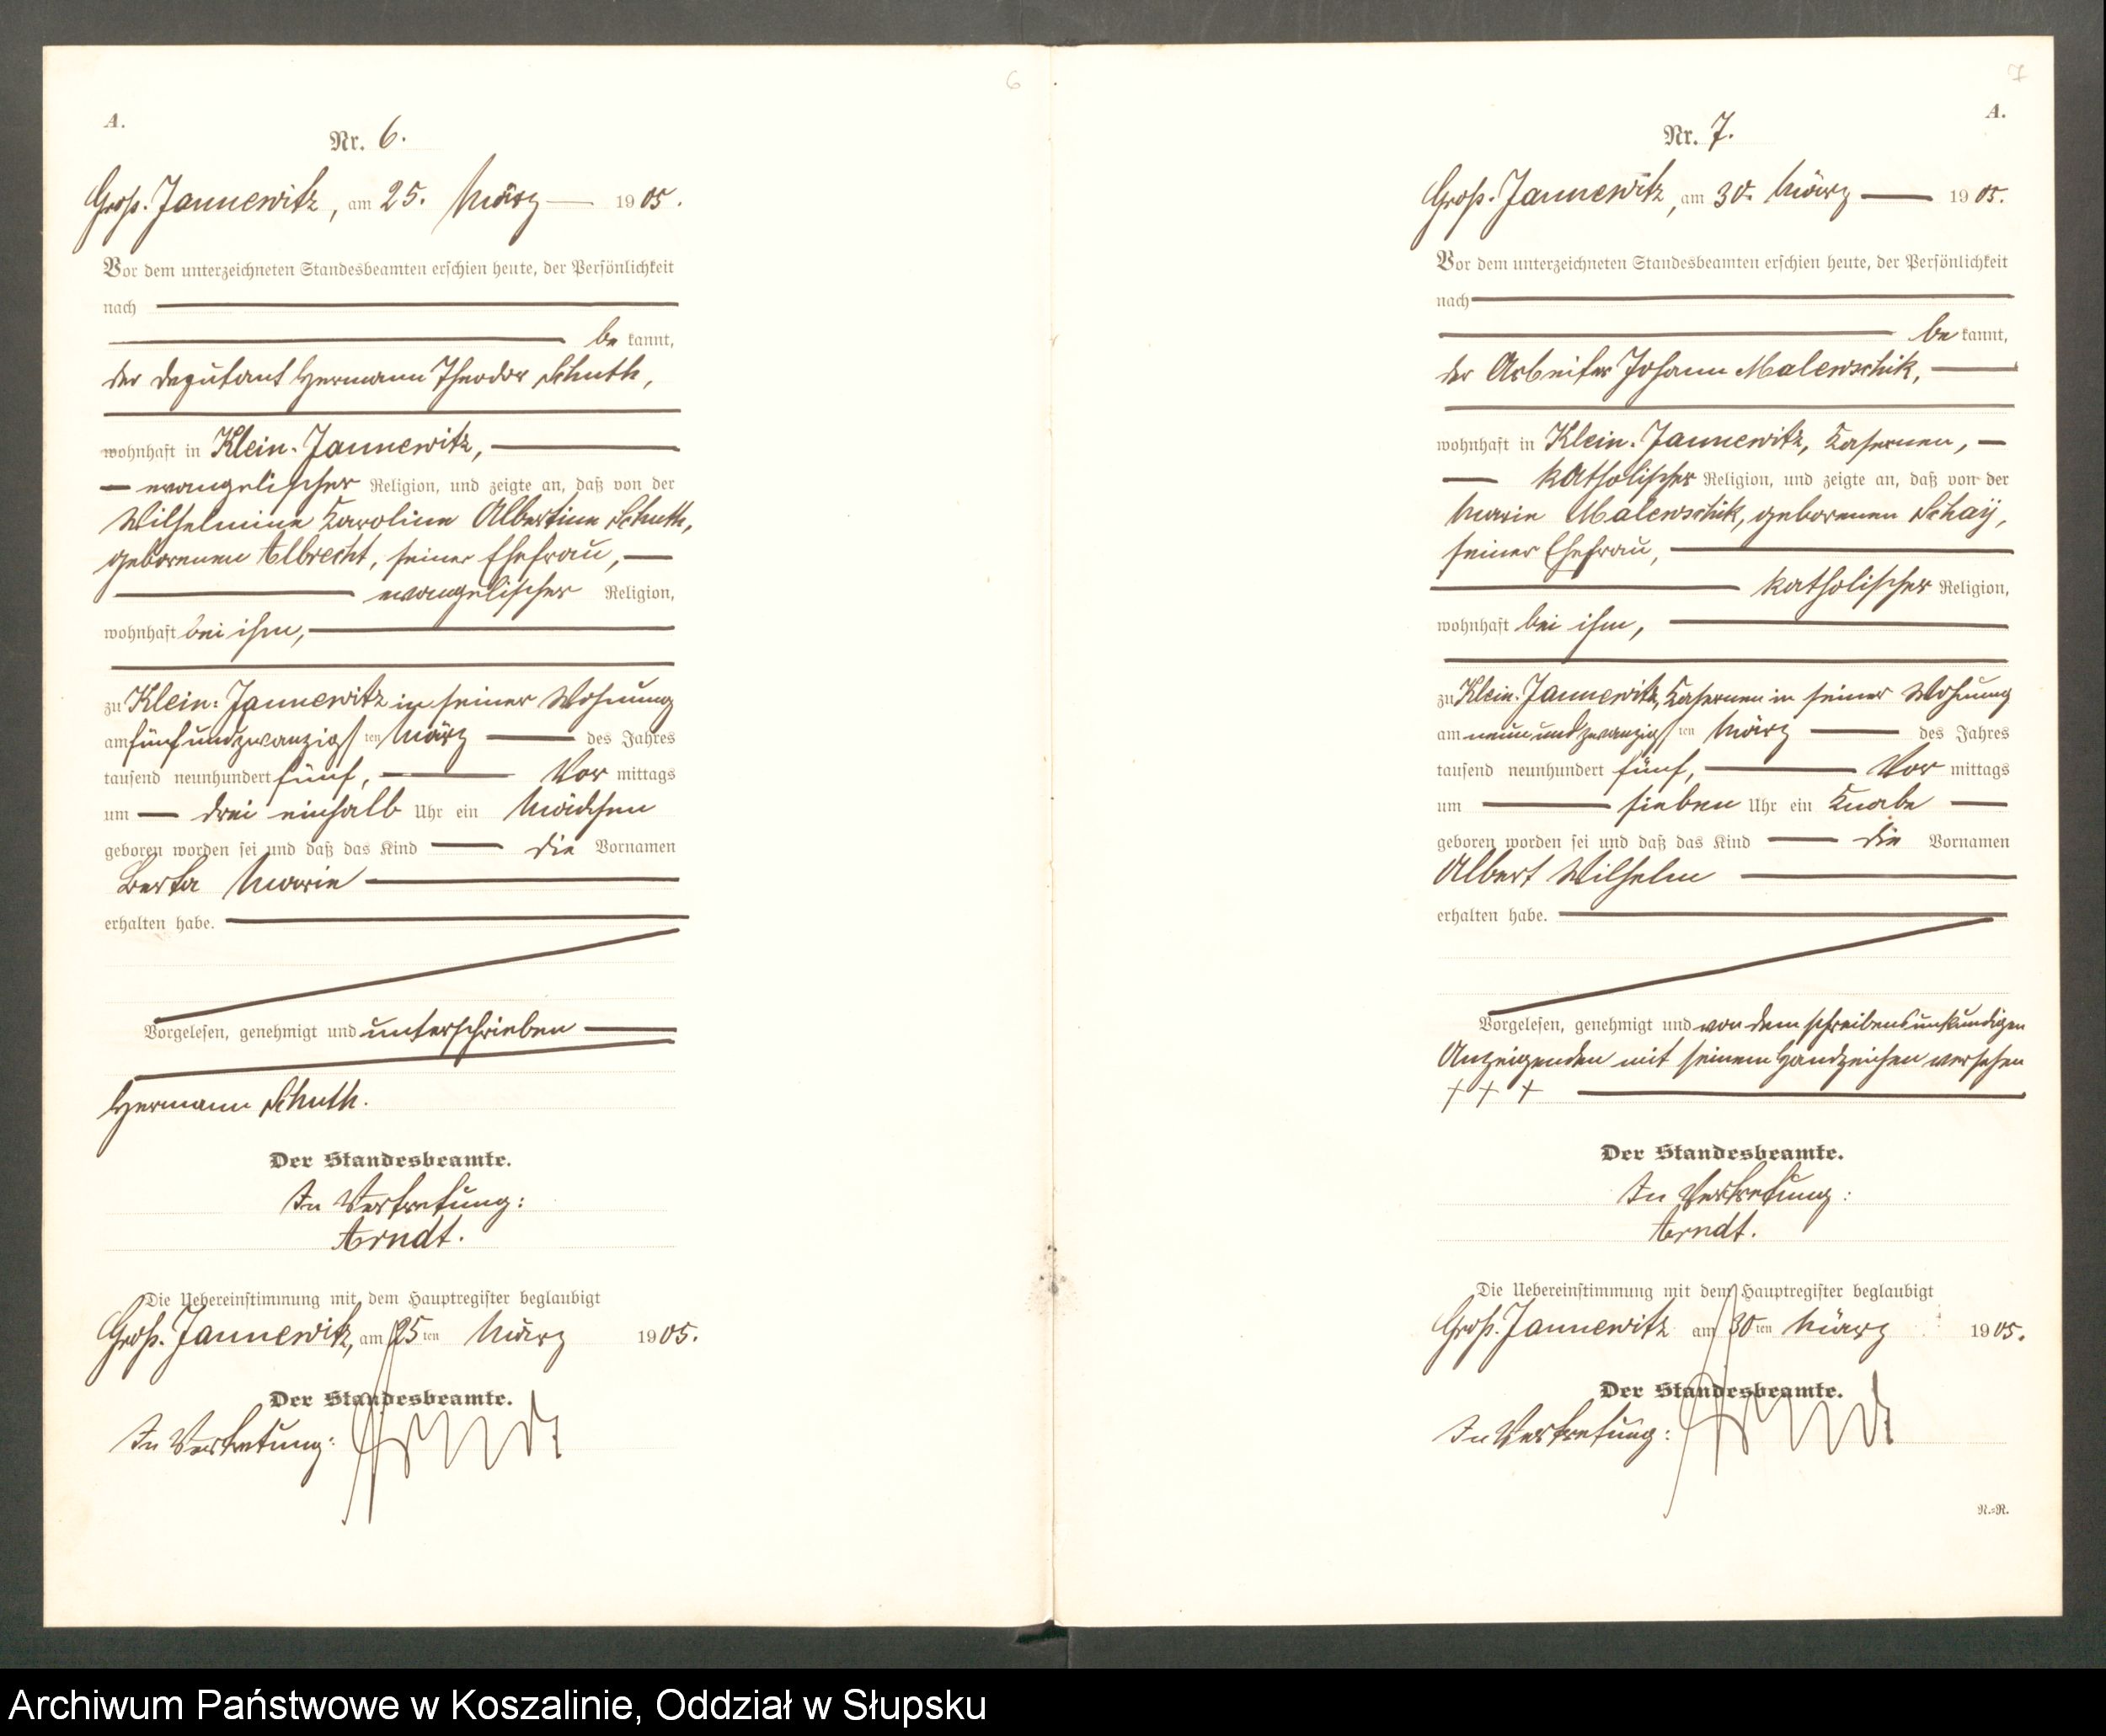 6
A.
Nr. 6.
Groß-Jannewitz, am 25. März 1905.
Vor dem unterzeichneten Standesbeamten erschien heute, der Persönlichkeit
nach
be kannt,
der Deputant Hermann Theodor Schuth,
wohnhaft in Klein-Jannewitz,
evangelischer Religion, und zeigte an, daß von der
Wilhelmine Karoline Albertine Schuth,
geborenen Albrecht, seiner Ehefrau,
evangelischer Religion,
wohnhaft bei ihm,
zu Klein-Jannewitz in seiner Wohnung
am fünfundzwanzigsten März des Jahres
tausend neunhundert fünf, Vor mittags
um drei einhalb Uhr ein Mädchen
geboren worden sei und daß das Kind die Vornamen
Berta Marie
erhalten habe.
Vorgelesen, genehmigt und unterschrieben
Hermann Schuth.
Der Standesbeamte.
In Vertretung:
Arndt.
Die Uebereinstimmung mit dem Hauptregister beglaubigt
Groß-Jannewitz, am 25ten März 1905.
Der Standesbeamte.
In Vertretung: Arndt
7
A.
Nr. 7.
Groß-Jannewitz, am 30. März 1905.
Vor dem unterzeichneten Standesbeamten erschien heute, der Persönlichkeit
nach
be kannt,
der Arbeiter Johann Malewschik,
wohnhaft in Klein-Jannewitz, Kasernen,
katholischer Religion, und zeigte an, daß von der
Marie Malewschik, geborenen Schaÿ,
seiner Ehefrau,
katholischer Religion,
wohnhaft bei ihm,
zu Klein-Jannewitz, Kasernen in seiner Wohnung
am neunundzwanzigsten März des Jahres
tausend neunhundert fünf, Vor mittags
um sieben Uhr ein Knabe
geboren worden sei und daß das Kind die Vornamen
Albert Wilhelm
erhalten habe.
Vorgelesen, genehmigt und von dem schreibensunkundigen
Anzeigenden mit seinem Handzeichen versehen
+ + +
Der Standesbeamte.
In Vertretung:
Arndt.
Die Uebereinstimmung mit dem Hauptregister beglaubigt
Groß-Jannewitz am 30ten März 1905.
Der Standesbeamte.
In Vertretung: Arndt
R.-R.
Archiwum Państwowe w Koszalinie, Oddział w Słupsku